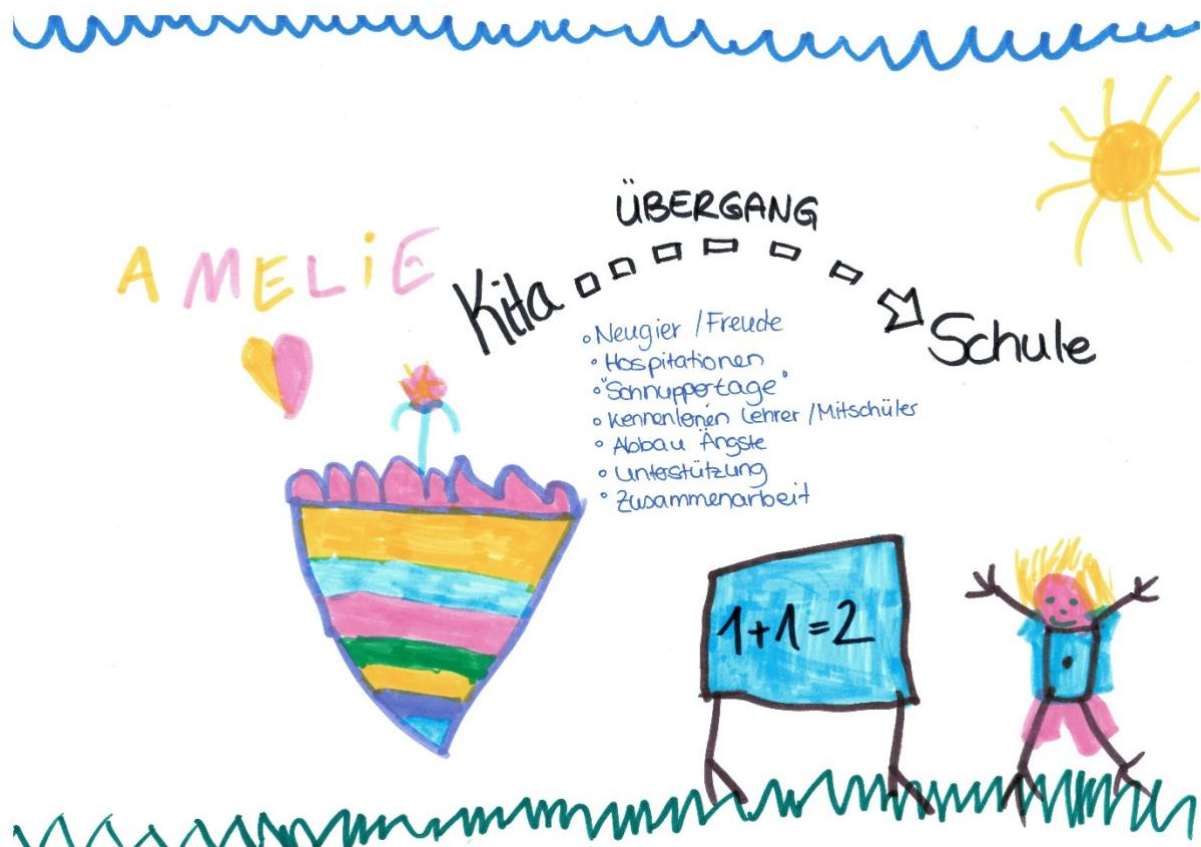 ÜBERGANG
AMELiE
Kita
Schule
• Neugier / Freude
• Hospitationen
• "Schnuppertage"
• Kennenlernen Lehrer / Mitschüler
• Abbau Ängste
• Unterstützung
• Zusammenarbeit
1+1=2